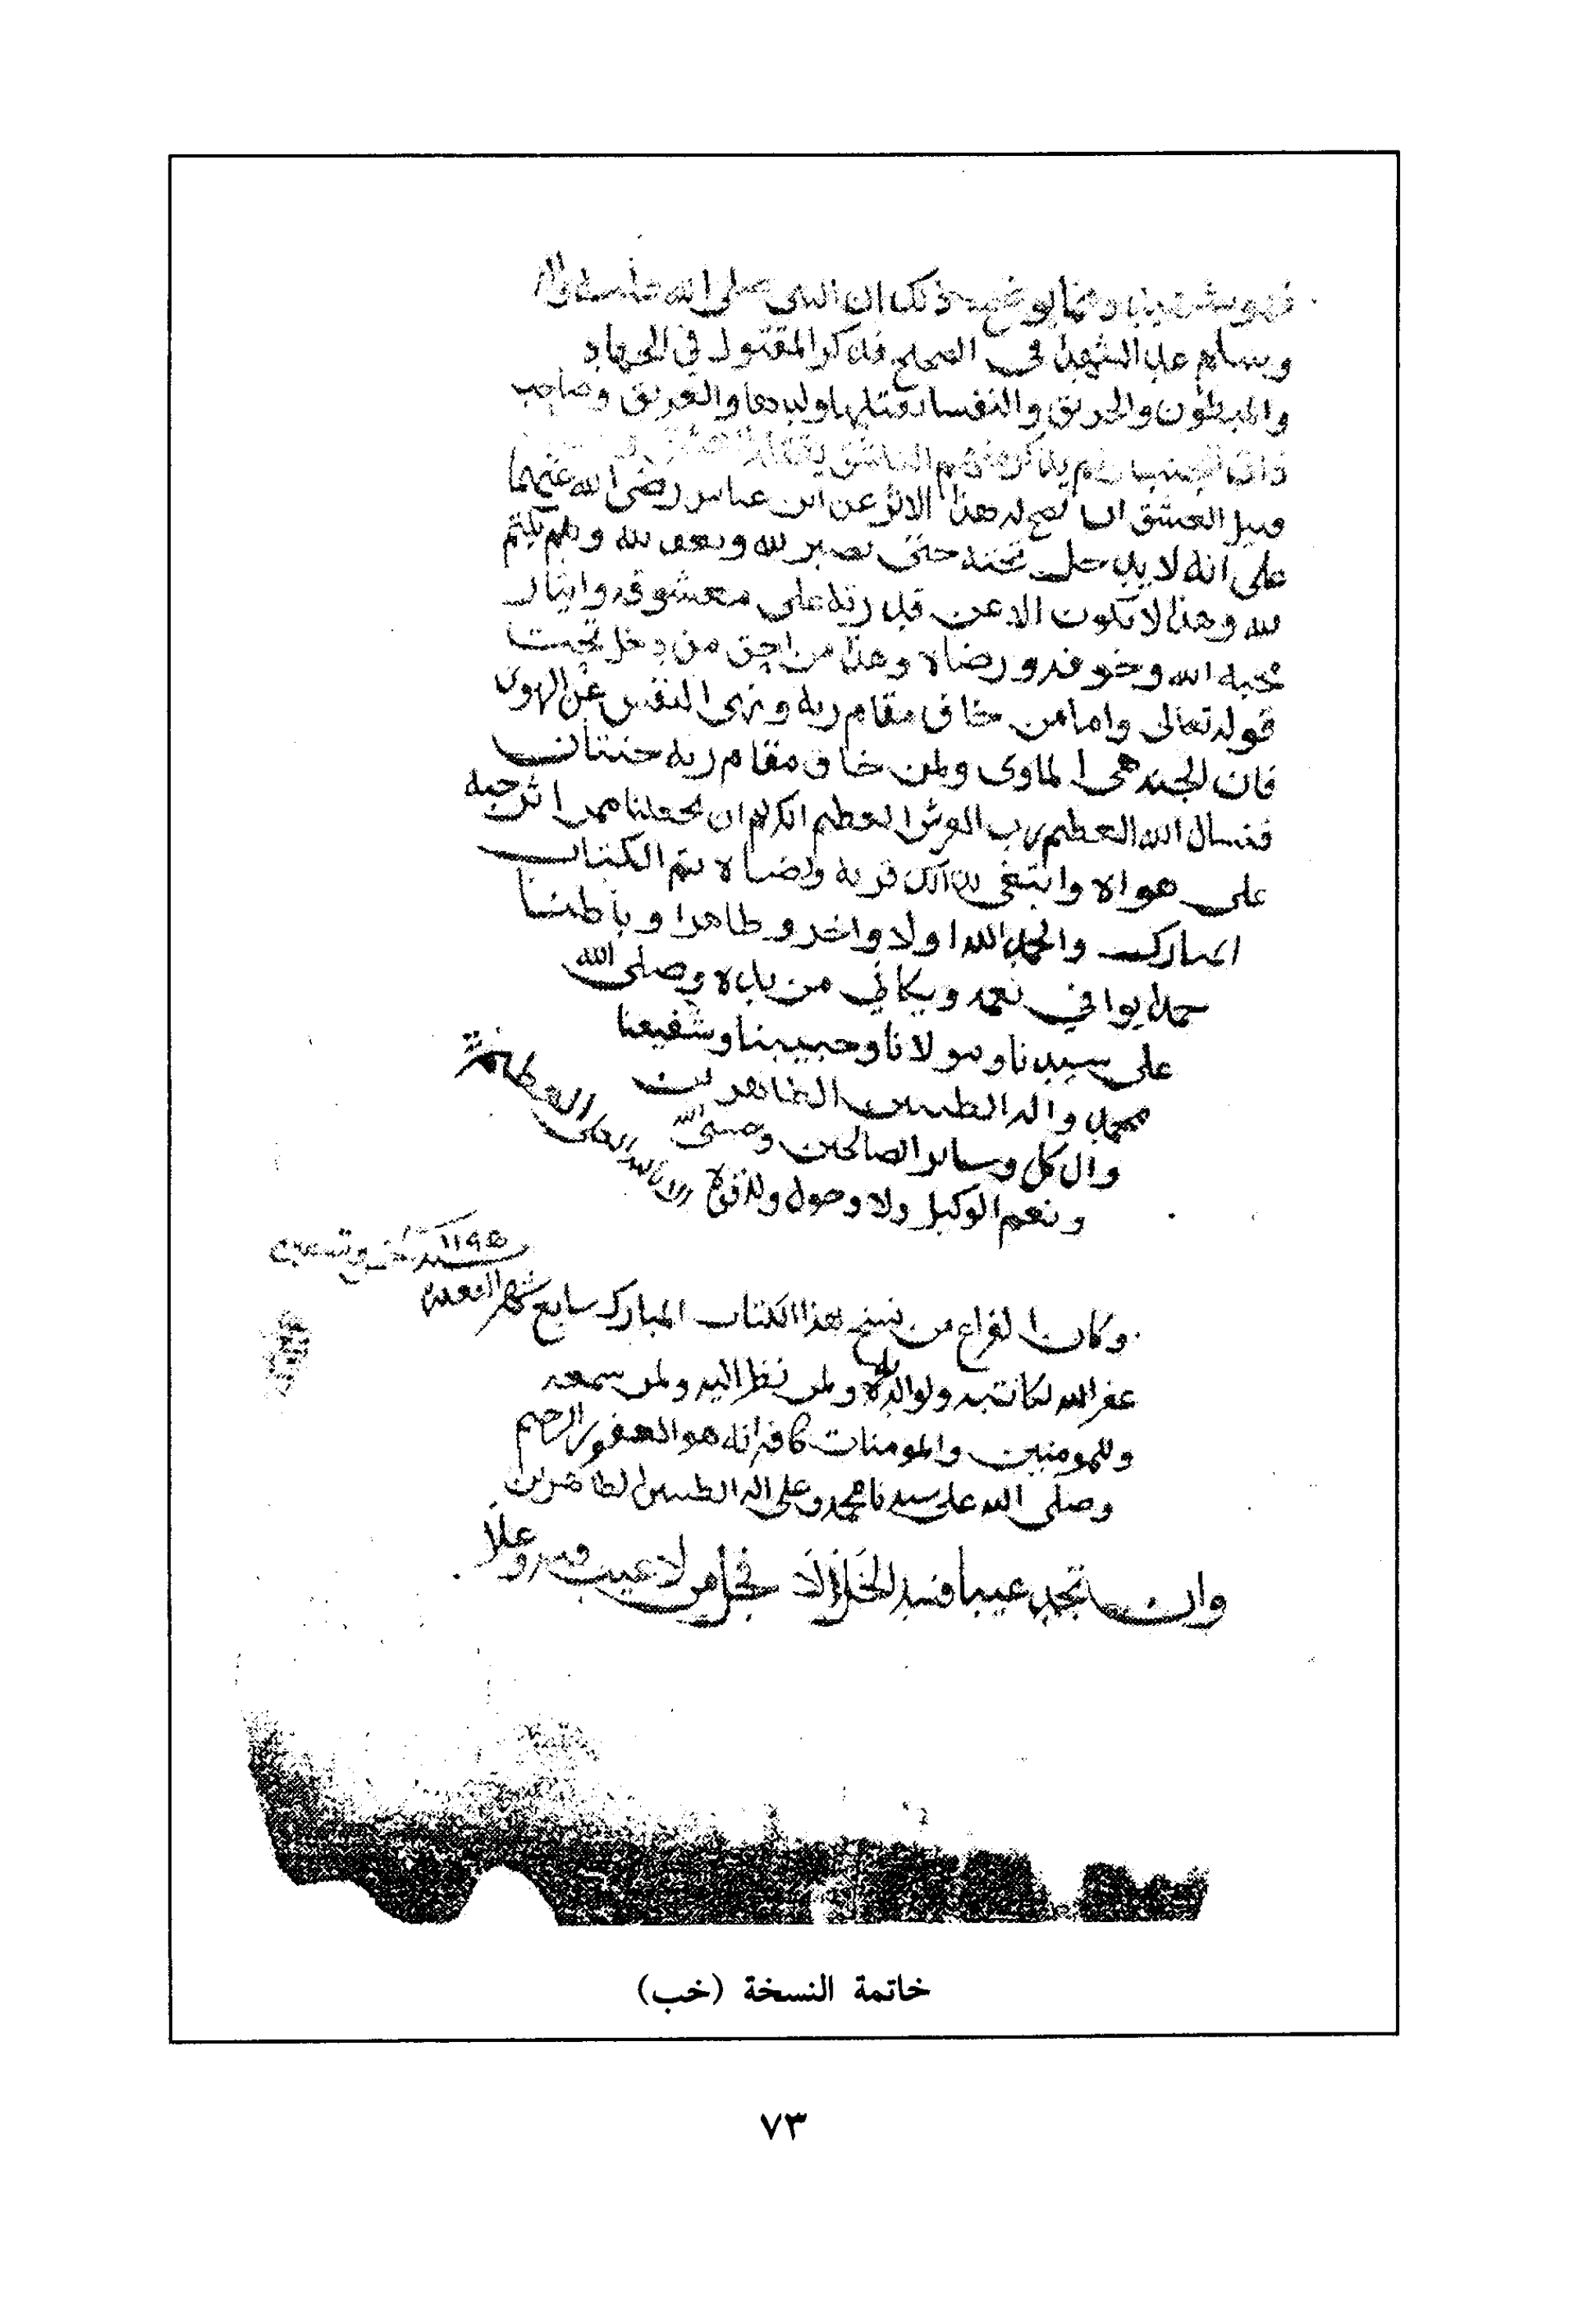 فهو شهيد ومما يوضح ذلك ان النبي صلى الله عليه واله
وسلم عد الشهدا في الصحيح فذكر المقتول في الجهاد
والمبطون والحريق والنفسا يقتلها ولدها والغريق وصاحب
ذات الجنب ولم يذكر منهم العاشق يقتله العشق
قبيل العشق ان صح له هذا الاثر عن ابن عباس رضي الله عنهما
على انه لا يدخل تحته حتى يصبر لله ويعف لله ويكتم
لله وهذا لا يكون الا عن قدرته على معشوقه وايثار
محبة الله وخوفه ورضاه وهذا من احق من دخل تحت
قوله تعالى واما من خاف مقام ربه ونهى النفس عن الهوى
فان الجنة هي الماوى ولمن خاف مقام ربه جنتان
فنسال الله العظيم رب العرش العظيم الكريم ان يجعلنا ممن اثر حبه
على هواه وابتغى بذلك قربه ورضاه تم الكتاب
المبارك والحمد لله اولا واخر وظاهرا وباطنا
حمدا يوافي نعمه ويكافي مزيده وصلى الله
على سيدنا ومولانا وحبيبنا وشفيعنا
محمد واله الطيبين الطاهرين
وال كل وساير الصالحين وحسبي الله
ونعم الوكيل ولا وحول ولا قوة الا بالله العلي العظيم
وكان الفراغ من نسخ هذا الكتاب المبارك سابع شهر القعدة
سنة ١١٩٥ خمس وتسعين
غفر الله لكاتبه ولوالديه ولمن نظر اليه ولمن سمعه
وللمومنين والمومنات كافة انه هو الغفور الرحيم
وصلى الله على سيدنا محمد وعلى اله الطيبين الطاهرين
وان تجد عيبا فسد الخللا فجل من لا عيب فيه وعلا
خاتمة النسخة (خب)
٧٣